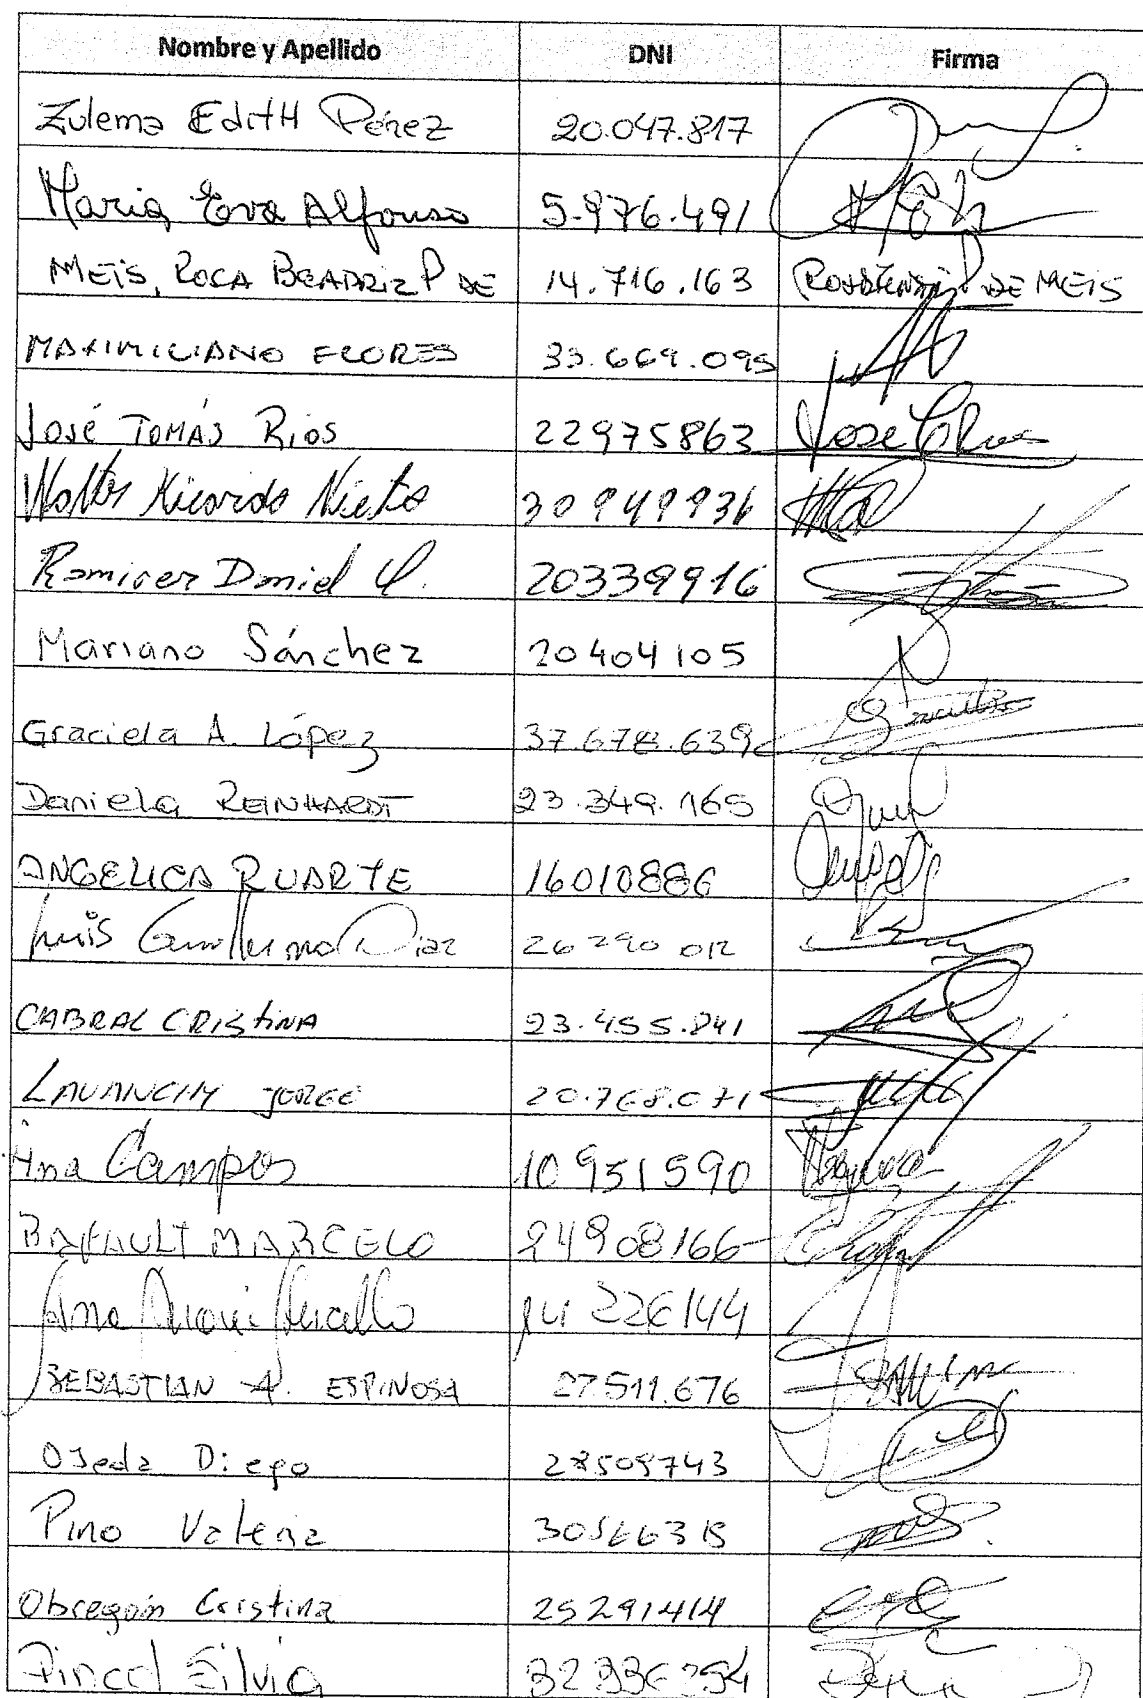 Nombre y Apellido DNI Firma
Zulema Edith Pérez 20.047.817
Maria Eva Alfonso 5.976.491
MEIS, ROSA BEATRIZ P DE 14.716.163 DE MEIS
MAXIMILIANO FLORES 33.669.095
José TOMÁS Rios 22975863 José
Walter Ricardo Nieto 30949936
Ramirez Daniel 20339916
Mariano Sánchez 20404105
Graciela A. López 37.678.639
Daniela REINHARDT 23.349.165
ANGELICA RUARTE 16010886
Luis Guillermo Diaz 26290012
CABRAL CRISTINA 23.455.841
JORGE 20.768.071
Ana Campos 10951590
MARCELO 24908166
Ana 226144
SEBASTIAN A. ESPINOSA 27.511.676
Ojeda Diego 28509743
Pino Valeria
Obregón Cristina 25291414
Silvia